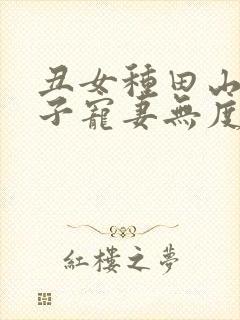 丑女種田山
子寵妻無度
紅樓之夢